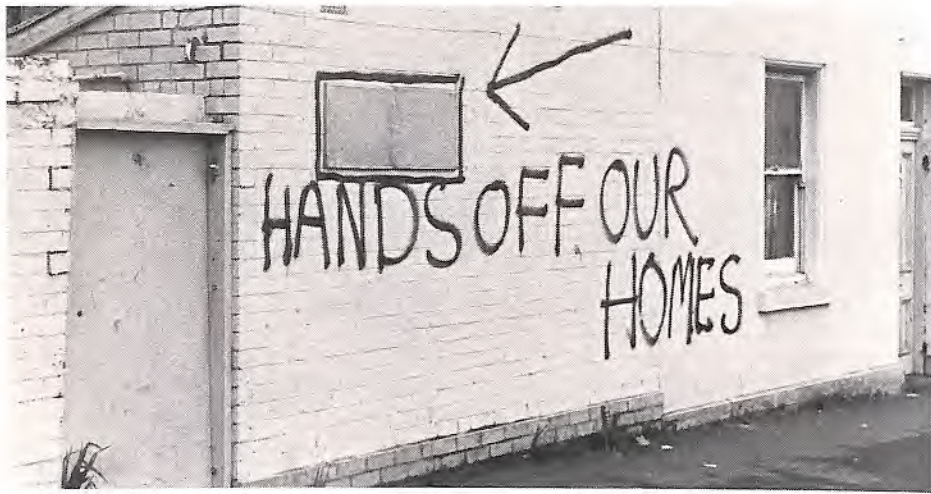 HANDS OFF OUR
HOMES